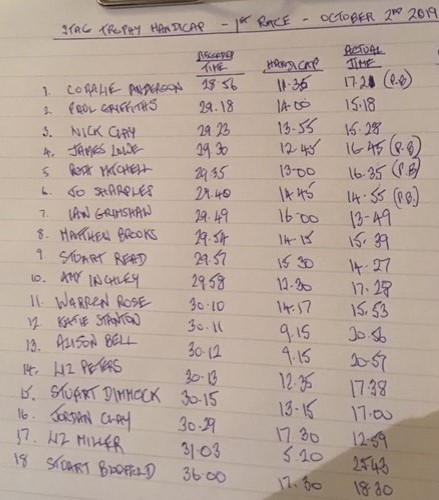 STAG TROPHY HANDICAP - 1ST RACE - OCTOBER 2ND 2019
RECORDED TIME HANDICAP ACTUAL TIME
1. CORALIE ANDERSON 28.56 11.35 17.21 (P.B)
2. PAUL GRIFFITHS 29.18 14.00 15.18
3. NICK CLAY 29.23 13-55 15.28
4. JAMES LOWE 29.30 12.45 16.45 (P.B)
5. MITCHELL 29.35 13.00 16.35 (P.B)
6. JO SHARPLES 29.40 14.45 14.55 (P.B.)
7. IAN GRIMSHAW 29.49 16.00 13-49
8. MATTHEW BROOKS 29.54 14.15 15.39
9 STUART REED 29.57 15.30 14.27
10. AMY INCHLEY 29.58 12.30 17.28
11. WARREN ROSE 30.10 14.17 15.53
12. KATIE STANTON 30.11 9.15 20.56
13. ALISON BELL 30.12 9.15 20.57
14. LIZ PETERS 30.13 12.35 17.38
15. STUART DIMMOCK 30.15 13.15 17.00
16. JORDAN CLAY 30.29 17.30 12.59
17. LIZ MILLER 31.03 5.20 25.43
18 STUART 36.00 17.30 18.30